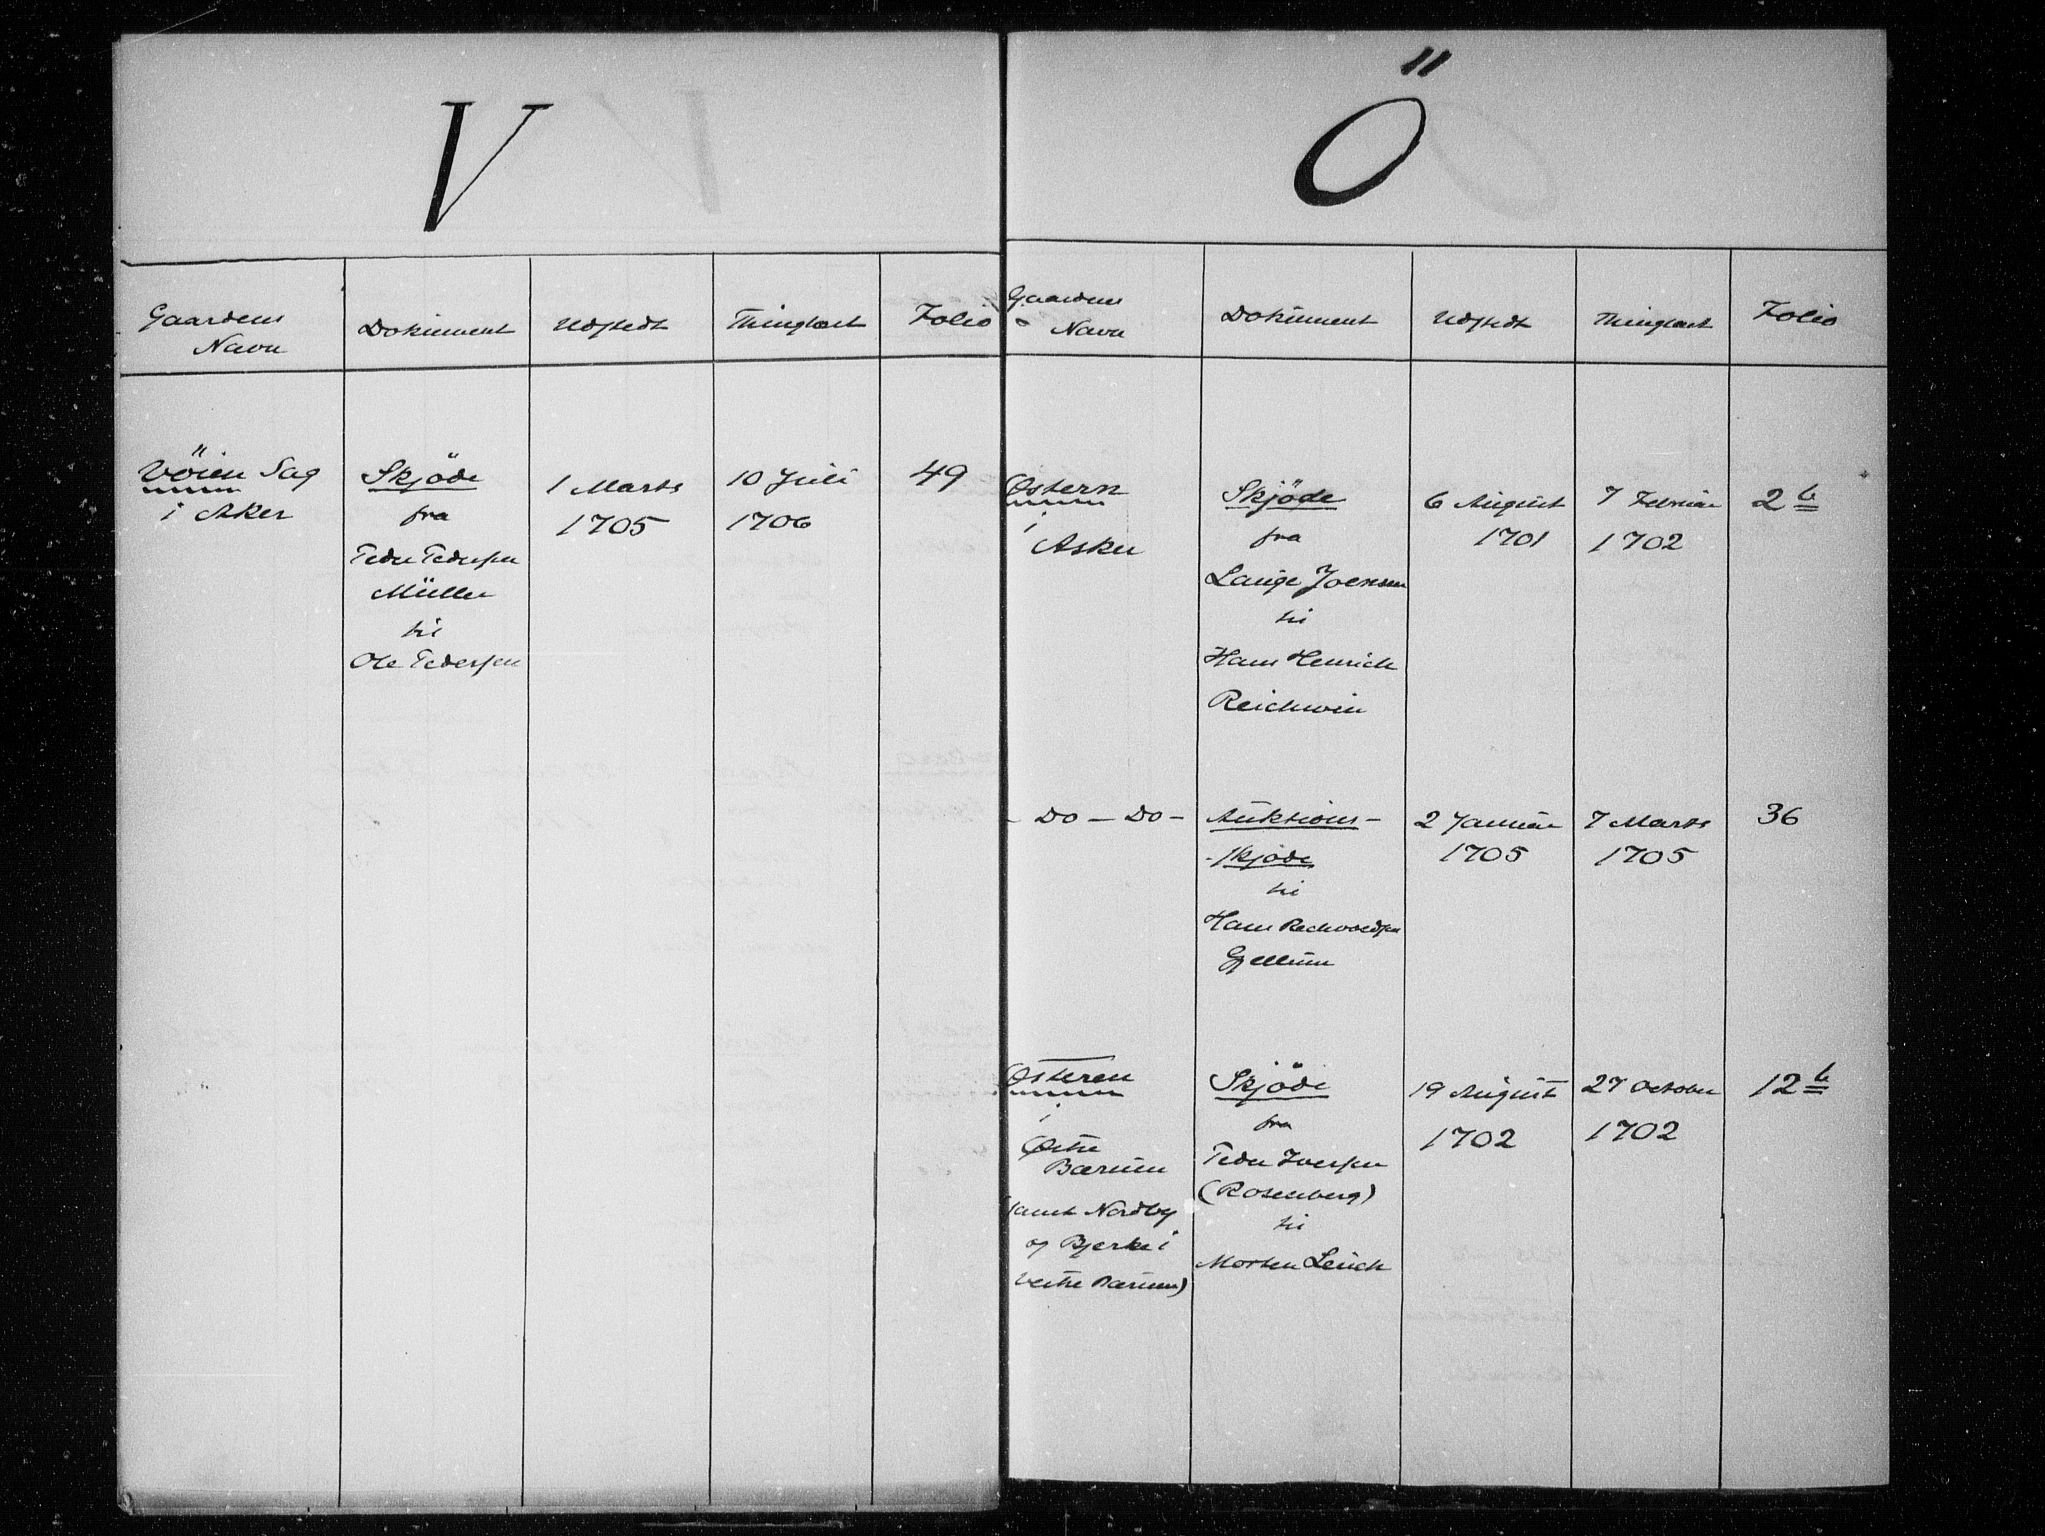 V
Gaardens
Navn
Dokument
Udstedt
Thinglæst
Folio
Vöien Sag
i Aker
Skjöde
fra
Peder Pedersen
Müller
til
Ole Pedersen
1 Marts
1705
10 Juli
1706
49
Ö
Gaardens
Navn
Dokument
Udstedt
Thinglæst
Folio
Østern
i
Asker
Skjöde
fra
Lauge Joensen
til
Hans Henrich
Reichwein
6 August
1701
7 Februar
1702
2 b
- Do - Do -
Auktions-
-skjöde
til
Hans
Gjellum
2 Januar
1705
7 Marts
1705
36
Østeren
i
Østre
Bærum
(samt Nordby
og Bjerke i
Vestre Bærum)
Skjöde
fra
Peder Iversen
(Rosenberg)
til
Morten Leuch
19 August
1702
27 October
1702
12 b